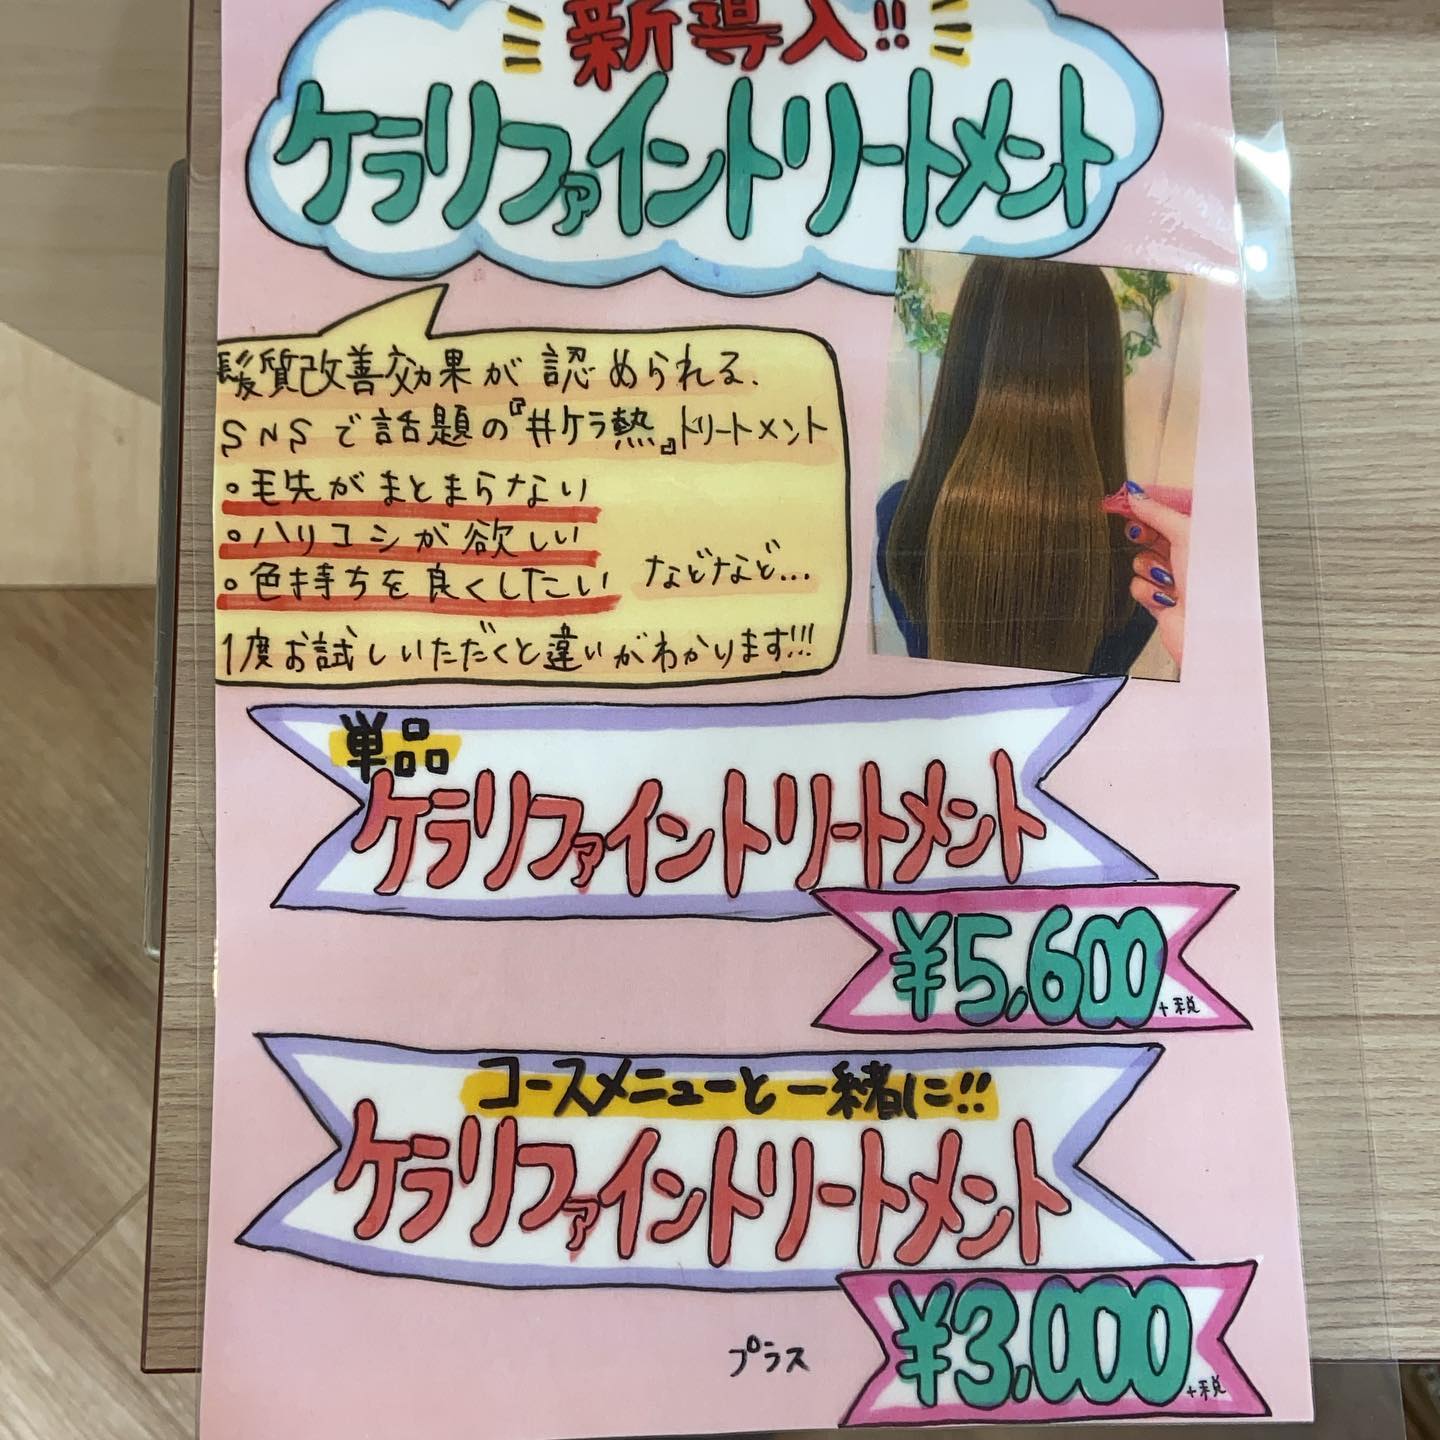 新導入!!
ケラリファイントリートメント
髪質改善効果が認められる、
SNSで話題の『#ケラ熱』トリートメント
◦毛先がまとまらない
◦ハリコシが欲しい
◦色持ちを良くしたい
などなど...
1度お試しいただくと違いがわかります!!!
単品
ケラリファイントリートメント
¥5,600+税
コースメニューと一緒に!!
ケラリファイントリートメント
プラス ¥3,000+税